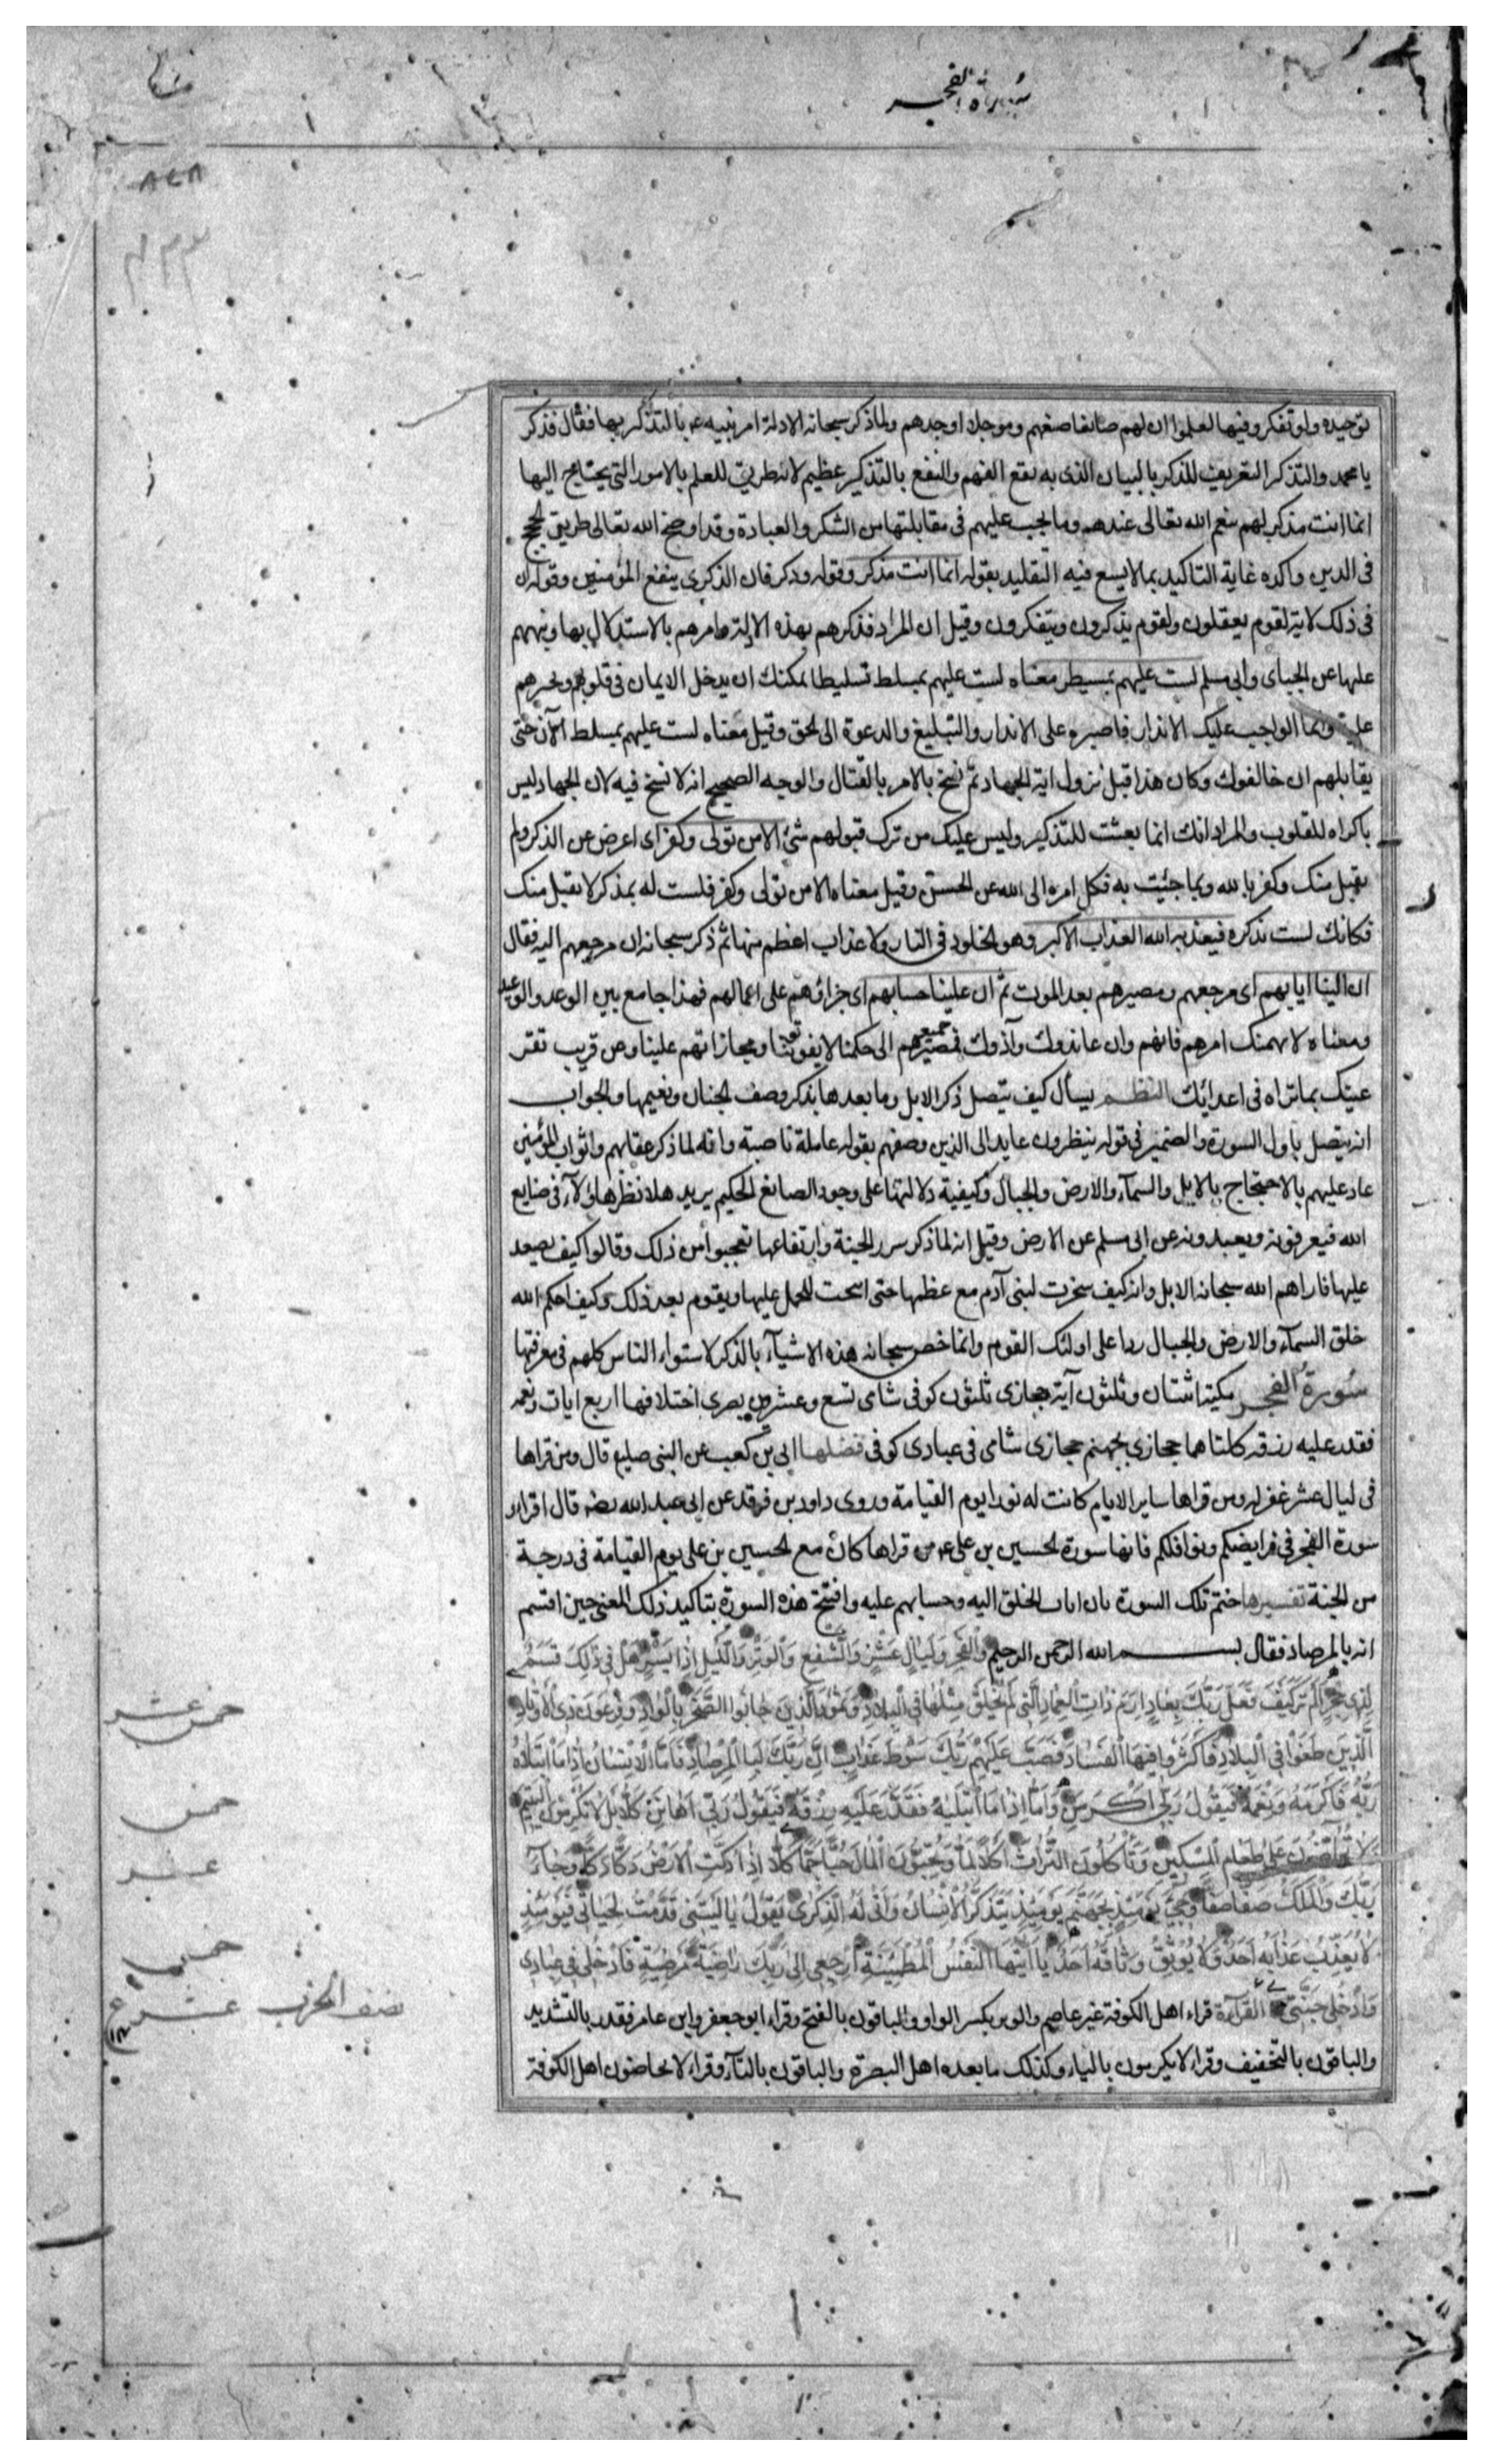 سورة الفجر
توحيده ولو تفكروا فيها لعلموا ان لهم صانعا صنعهم وموجدا اوجدهم ولما ذكر سبحانه الادلة امر نبيه عم بالتذكر بها فقال فذكر
يا محمد والتذكر التعريف للذكر بالبيان الذى به يقع الفهم والنفع بالتذكير عظيم لانه طريق للعلم بالامور التى يحتاج اليها
انما انت مذكر لهم بنعم الله تعالى عندهم وما يجب عليهم فى مقابلتها من الشكر والعبادة وقد اوضح الله تعالى طريق الحجج
فى الدين واكده غاية التاكيد بما لا يسع فيه التقليد بقوله انما انت مذكر وقوله وذكر فان الذكرى ينفع المؤمنين وقوله ان
فى ذلك لاية لقوم يعقلون ولقوم يذكرون ويتفكرون وقيل ان المراد فذكرهم بهذه الادلة وامرهم بالاستدلال بها ونبههم
عليها عن الجباى وابى مسلم لست عليهم بمسيطر معناه لست عليهم بمسلط تسليطا يمكنك ان يدخل الايمان فى قلوبهم وتجبرهم
عليه وانما الواجب عليك الانذار فاصبر على الانذار والتبليغ والدعوة الى الحق وقيل معناه لست عليهم بمسلط الآن حتى
يقاتلهم ان خالفوك وكان هذا قبل نزول اية الجهاد ثم نسخ بالامر بالقتال والوجه الصحيح انه لا نسخ فيه لان الجهاد ليس
باكراه للقلوب والمراد انك انما بعثت للتذكير وليس عليك من ترك قبولهم شئ الا من تولى وكفر اى اعرض عن الذكر ولم
يقبل منك وكفر بالله وبما جئت به فكل امره الى الله عن الحسن وقيل معناه الا من تولى وكفر فلست له بمذكر لا يقبل منك
فكانك لست تذكره فيعذبه الله العذاب الاكبر وهو الخلود فى النار ولا عذاب اعظم منها ثم ذكر سبحانه ان مرجعهم اليه فقال
ان الينا ايابهم اى مرجعهم ومصيرهم بعد الموت ثم ان علينا حسابهم اى جزاؤهم على اعمالهم فهذا جامع بين الوعد والوعيد
ومعناه لا يهمنك امرهم فانهم وان عاندوك وآذوك فمصير جميعهم الى حكمنا لا يفوتوننا ومجازاتهم علينا وعن قريب تقر
عينك بما تراه فى اعدائك النظم يسأل كيف يتصل ذكر الابل وما بعدها بذكر وصف الجنان ونعيمها والجواب
انه يتصل باول السورة والضمير فى قوله ينظرون عايد الى الذين وصفهم بقوله عاملة ناصبة وانه لما ذكر عقابهم وثواب المؤمنين
عاد عليهم بالاحتجاج بالابل والسمآء والارض والجبال وكيفية دلالتها على وجود الصانع الحكيم يريد هلا نظر هاؤلآء فى صنايع
الله فيعرفونه ويعبدونه عن ابى مسلم عن الارض وقيل انه لما ذكر سرر الجنة وارتفاعها تعجبوا من ذلك وقالوا كيف يصعد
عليها فاراهم الله سبحانه الابل وانه كيف سخرت لبنى آدم مع عظمها حتى اسحت للحمل عليها ويقوم بعد ذلك وكيف احكم الله
خلق السمآء والارض والجبال ردا على اولئك القوم وانما خص سبحانه هذه الاشيآء بالذكر لاستواء الناس كلهم فى معرفتها
سورة الفجر مكية اثنتان وثلثون آية حجازى ثلثون كوفى شامى تسع وعشرون بصرى اختلافها اربع ايات ونعمه
فقدر عليه رزقه كلتاهما حجازى بجهنم حجازى شامى فى عبادى كوفى فضلها ابى بن كعب عن النبى صلعم قال ومن قراها
فى ليال عشر غفر له ومن قراها ساير الايام كانت له نورا يوم القيامة وروى داود بن فرقد عن ابى عبد الله رضه قال اقراوا
سورة الفجر فى فرايضكم ونوافلكم فانها سورة الحسين بن على عم من قراها كان مع الحسين بن على يوم القيامة فى درجة
من الجنة تفسيرها ختم تلك السورة بان اياب الخلق اليه وحسابهم عليه وافتتح هذه السورة بتاكيد ذلك المعنى حين اقسم
انه بالمرصاد فقال بسم الله الرحمن الرحيم وَالفَجرِ وَلَيَالٍ عَشْرٍ وَالشَّفْعِ وَالْوَتْرِ وَاللَّيلِ اِذَا يَسْرِ هَلْ فى ذلِكَ قَسَمٌ
لِذِى حِجْرٍ اَلَمْ تَرَ كَيْفَ فَعَلَ رَبُّكَ بِعَادٍ اِرَمَ ذَاتِ العِمَادِ الَّتى لَمْ يُخْلَقْ مِثْلُهَا فى البِلَادِ وَثَمُودَ الَّذينَ جَابُوا الصَّخْرَ بِالْوَادِ وَفِرْعَوْنَ ذِى الْاَوْتَادِ
الَّذينَ طَغَوْا فى الْبِلَادِ فَاَكْثَرُوا فيهَا الْفَسَادَ فَصَبَّ عَلَيْهِمْ رَبُّكَ سَوْطَ عَذَابٍ اِنَّ رَبَّكَ لَبِالْمِرْصَادِ فَاَمَّا الْاِنْسَانُ اِذَا مَا ابْتَلَاهُ
رَبُّهُ فَاَكْرَمَهُ وَنَعَّمَهُ فَيَقُولُ رَبّى اَكْرَمَنِ وَاَمَّا اِذَا مَا ابْتَلَيهُ فَقَدَرَ عَلَيْهِ رِزْقَهُ فَيَقُولُ رَبّى اَهَانَنِ كَلَّا بَلْ لَا تُكْرِمُونَ الْيَتيمَ
لَا تَحَاضُّونَ عَلى طَعَامِ الْمِسْكينِ وَتَأْكُلُونَ التُّرَاثَ اَكْلًا لَمًّا وَتُحِبُّونَ الْمَالَ حُبًّا جَمًّا كَلَّا اِذَا دُكَّتِ الْاَرْضُ دَكًّا دَكًّا وَجَآءَ
رَبُّكَ وَالْمَلَكُ صَفًّا صَفًّا وَجِىءَ يَوْمَئِذٍ بِجَهَنَّمَ يَوْمَئِذٍ يَتَذَكَّرُ الْاِنْسَانُ وَاَنّى لَهُ الذِّكْرى يَقُولُ يَا لَيْتَنى قَدَّمْتُ لِحَيَاتى فَيَوْمَئِذٍ
لَا يُعَذِّبُ عَذَابَهُ اَحَدٌ وَلَا يُوثِقُ وَثَاقَهُ اَحَدٌ يَا اَيَّتُهَا النَّفْسُ الْمُطْمَئِنَّةُ اِرْجِعى اِلى رَبِّكِ رَاضِيَةً مَرْضِيَّةً فَادْخُلى فى عِبَادى
وَادْخُلى جَنَّتى القرآءة قراء اهل الكوفة غير عاصم والوتر بكسر الواو والباقون بالفتح وقراء ابو جعفر وابن عامر فقدر بالتشديد
والباقون بالتخفيف وقراء لا يكرمون بالياء وكذلك ما بعده اهل البصرة والباقون بالتآء وقراء لا تحاضون اهل الكوفة
خمس عشر
خمس
عشر
خمس
نصف الحزب عشر